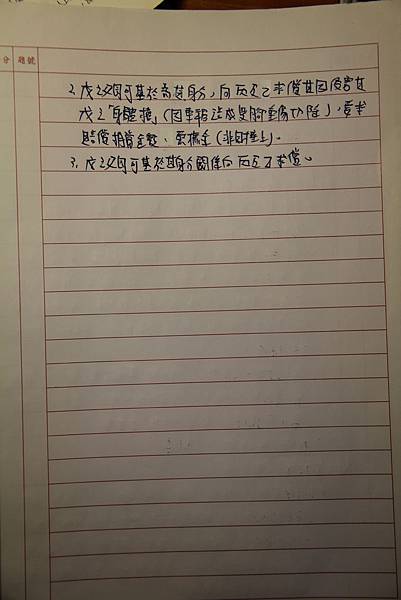 分 題號
2. 戊之父可基於其身分,向丙至乙求償其因侵害其
戊之「身體權」(因車禍造成雙腳重傷切除),要求
賠償損害金錢、慰撫金(非財產上)。
3. 戊之父可基於其身分關係向丙至丁求償。